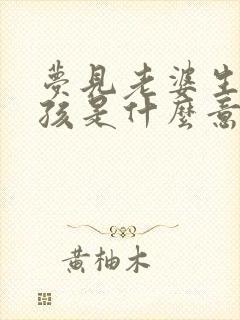 夢見老婆生
孩是什麼意
黃柚木